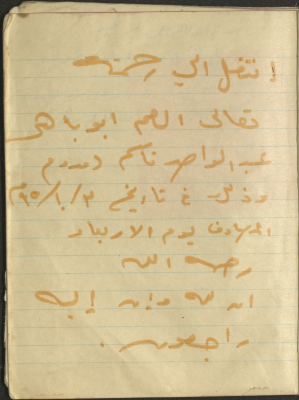 إنتقل الى رحمته
تعالى العم ابو باهر
عبد الواحد قاسم
وذلك في تاريخ ٣/١٠/٩٥م
المصادف يوم الاربعاء
رحمه الله
ان لله وإن إليه
راجعون.